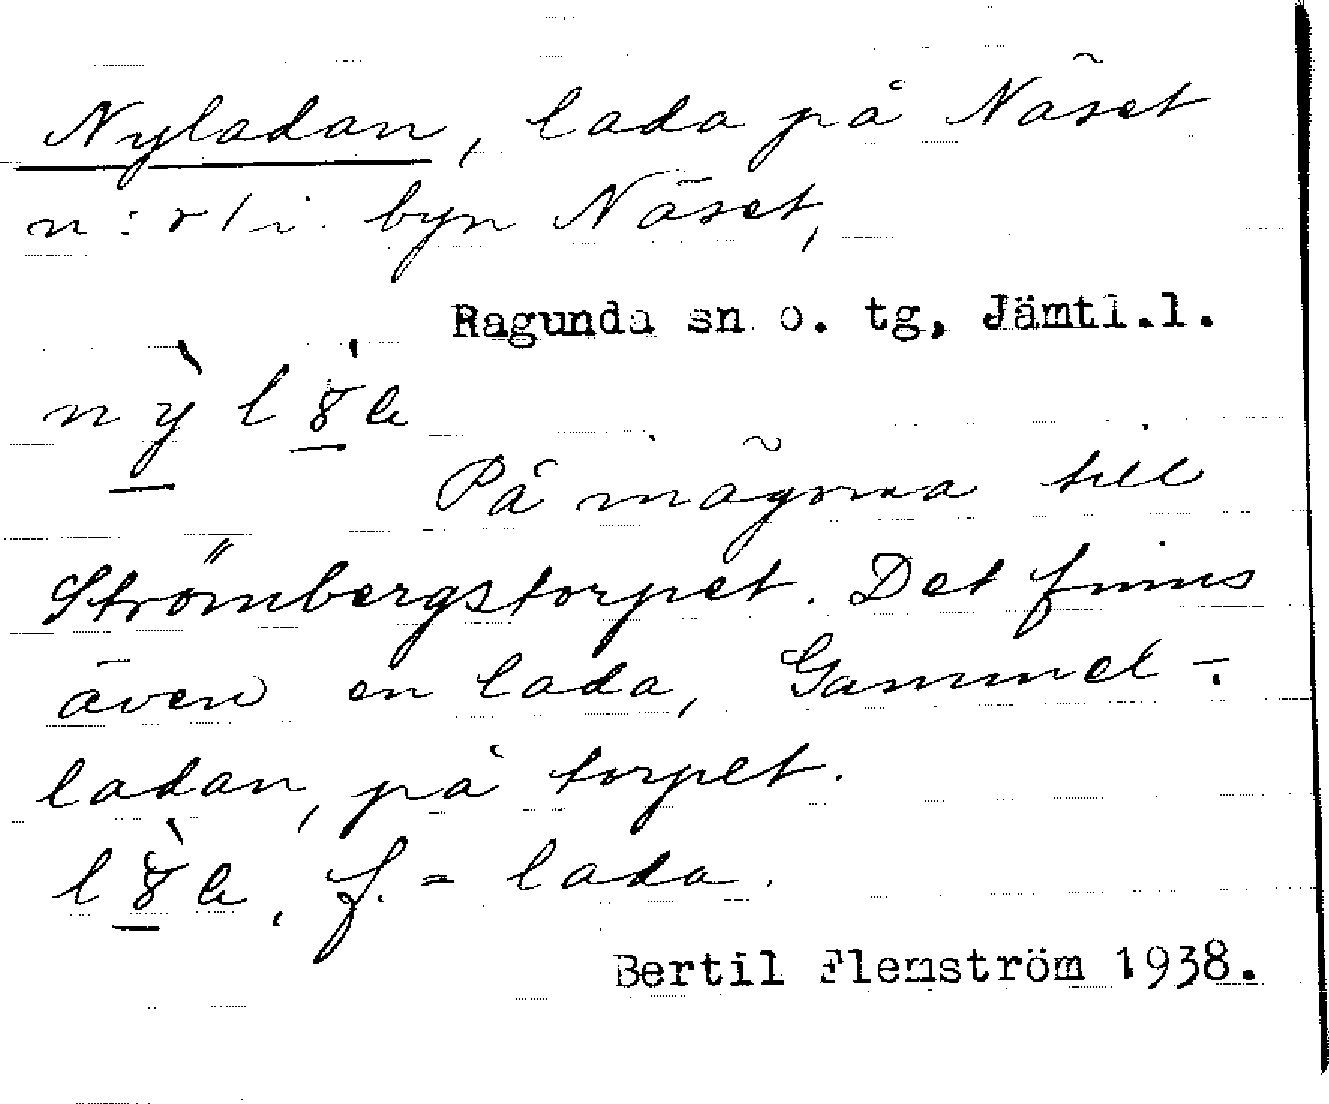 Nyladan, lada på Näset
n:r 1 i byn Näset,
Ragunda sn o. tg, Jämtl.l.
På mägorna till
Strömbergstorpet. Det finns
även en lada, Gammel-
ladan, på torpet.
f. = lada.
Bertil Flemström 1938.